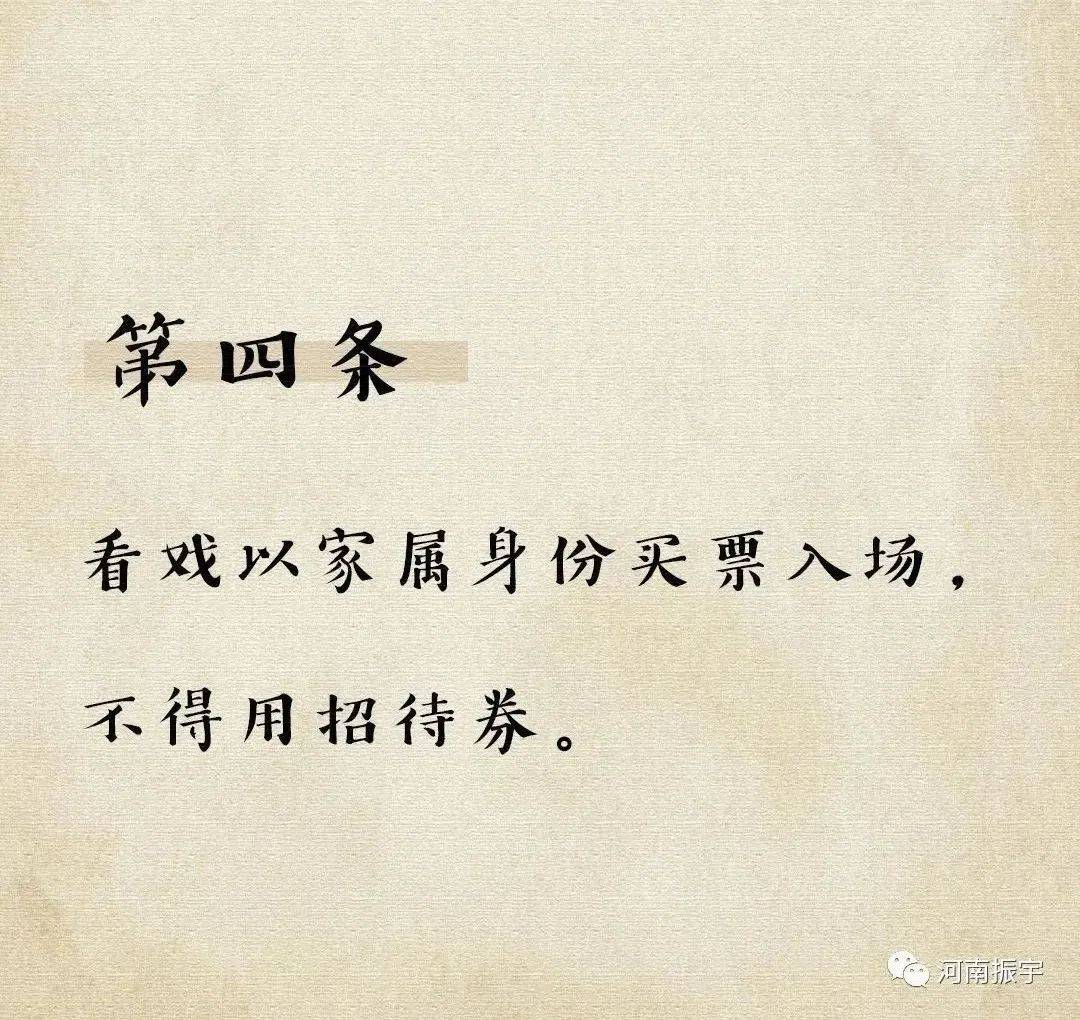 第四条
看戏以家属身份买票入场，
不得用招待券。
河南振宇